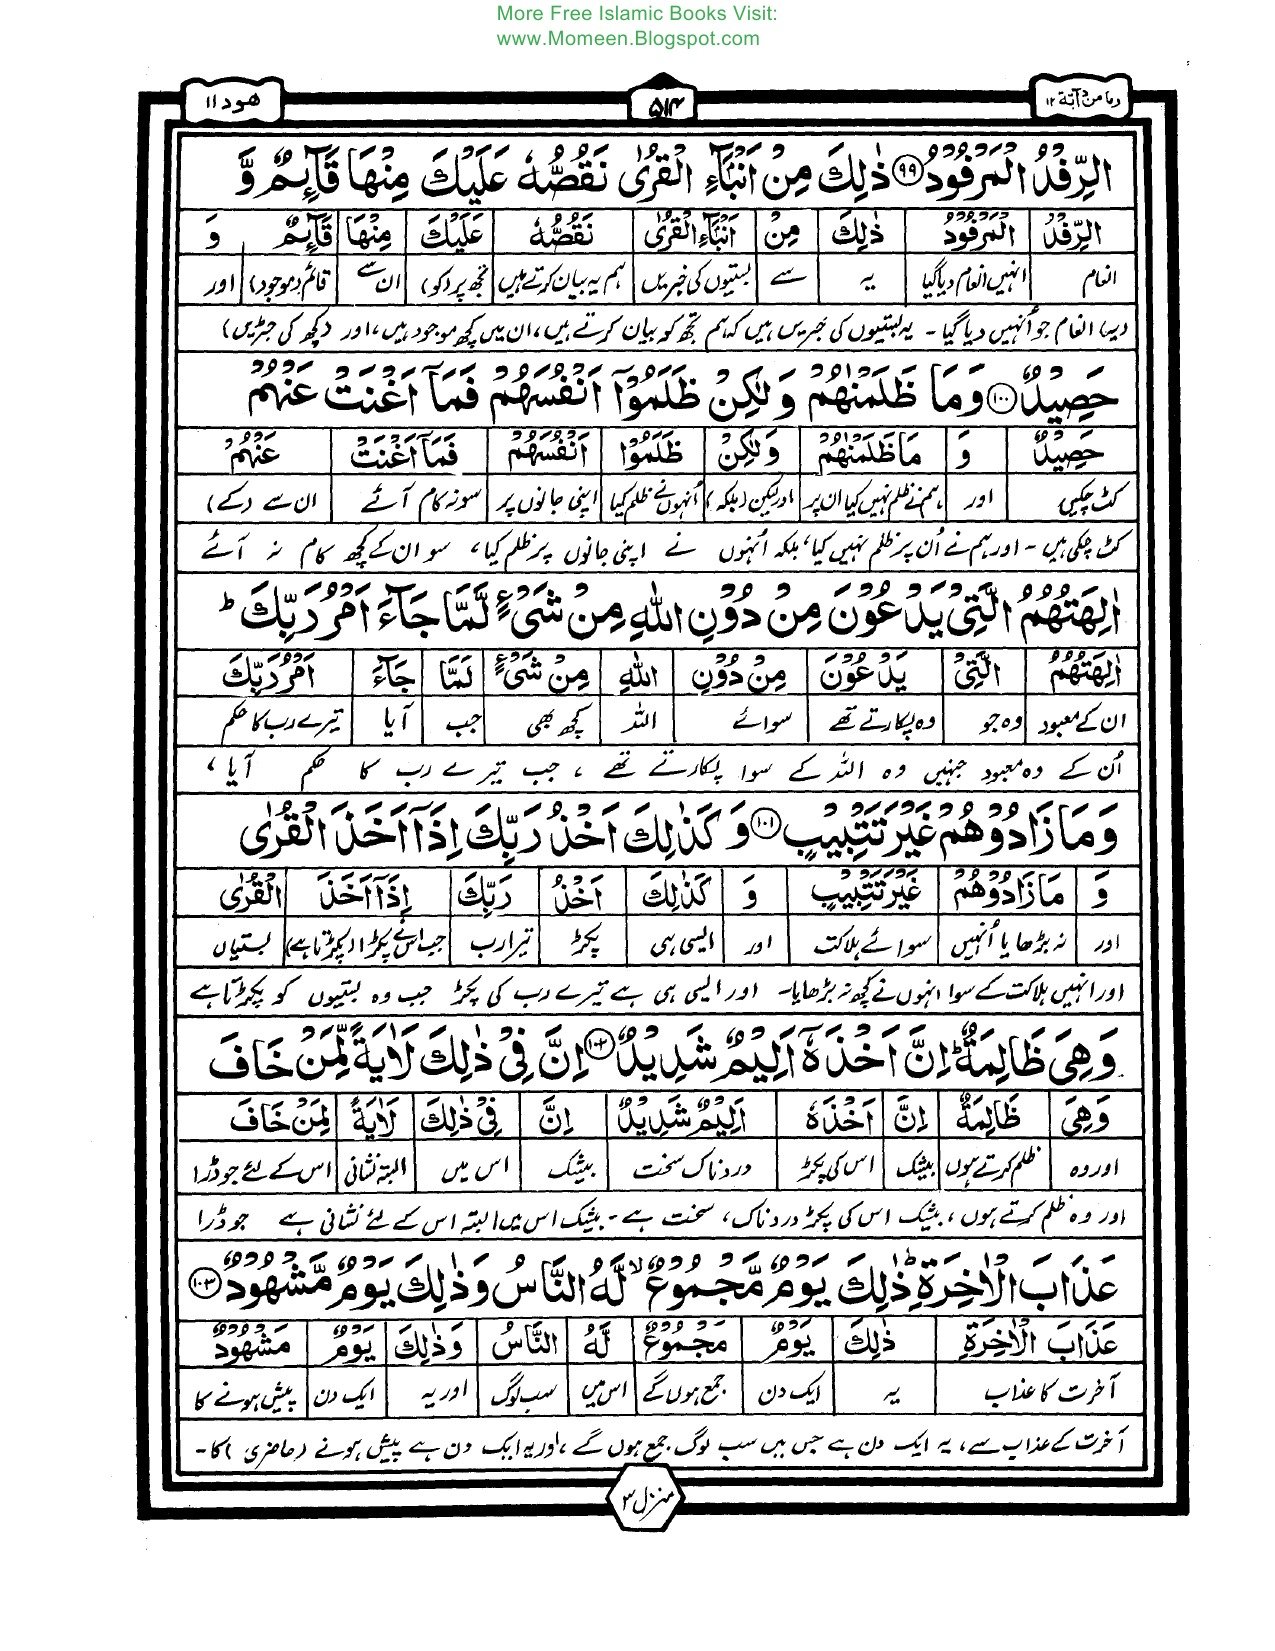 More Free Islamic Books Visit:
www.Momeen.Blogspot.com
ھود ۱۱
۵۱۴
وما من دآبة ۱۲
الرِّفْدُ الْمَرْفُوْدُ ۹۹ ذٰلِكَ مِنْ اَنْۢبَآءِ الْقُرٰى نَقُصُّهٗ عَلَيْكَ مِنْهَا قَآئِمٌ وَّ
الرِّفْدُ الْمَرْفُوْدُ ذٰلِكَ مِنْ اَنْۢبَآءِ الْقُرٰى نَقُصُّهٗ عَلَيْكَ مِنْهَا قَآئِمٌ وَ
انعام انہیں انعام دیا گیا یہ سے بستیوں کی خبریں ہم یہ بیان کرتے ہیں تجھ پر (کو) ان سے قائم (موجود) اور
(برا) انعام جو اُنہیں دیا گیا ۔ یہ بستیوں کی خبریں ہیں کہ ہم تجھ کو بیان کرتے ہیں، ان میں کچھ موجود ہیں، اور (کچھ کی جڑیں)
حَصِيْدٌ ۱۰۰ وَمَا ظَلَمْنٰهُمْ وَلٰكِنْ ظَلَمُوْٓا اَنْفُسَهُمْ فَمَآ اَغْنَتْ عَنْهُمْ
حَصِيْدٌ وَ مَا ظَلَمْنٰهُمْ وَلٰكِنْ ظَلَمُوْٓا اَنْفُسَهُمْ فَمَآ اَغْنَتْ عَنْهُمْ
کٹ چکیں اور ہم نے ظلم نہیں کیا ان پر اور لیکن (بلکہ) اُنہوں نے ظلم کیا اپنی جانوں پر سو نہ کام آئے ان سے (کے)
کٹ چکی ہیں ۔ اور ہم نے اُن پر ظلم نہیں کیا، بلکہ اُنہوں نے اپنی جانوں پر ظلم کیا، سو ان کے کچھ کام نہ آئے
اٰلِهَتُهُمُ الَّتِيْ يَدْعُوْنَ مِنْ دُوْنِ اللّٰهِ مِنْ شَيْءٍ لَّمَّا جَآءَ اَمْرُ رَبِّكَ ؕ
اٰلِهَتُهُمُ الَّتِيْ يَدْعُوْنَ مِنْ دُوْنِ اللّٰهِ مِنْ شَيْءٍ لَمَّا جَآءَ اَمْرُ رَبِّكَ
ان کے معبود وہ جو وہ پکارتے تھے سوائے اللہ کچھ بھی جب آیا تیرے رب کا حکم
اُن کے وہ معبود جنہیں وہ اللہ کے سوا پکارتے تھے ، جب تیرے رب کا حکم آیا ،
وَمَا زَادُوْهُمْ غَيْرَ تَتْبِيْبٍ ۱۰۱ وَكَذٰلِكَ اَخْذُ رَبِّكَ اِذَآ اَخَذَ الْقُرٰى
وَ مَا زَادُوْهُمْ غَيْرَ تَتْبِيْبٍ وَ كَذٰلِكَ اَخْذُ رَبِّكَ اِذَآ اَخَذَ الْقُرٰى
اور نہ بڑھایا اُنہیں سوائے ہلاکت اور ایسی ہی پکڑ تیرا رب جب اس نے پکڑا (پکڑتا ہے) بستیاں
اور انہیں ہلاکت کے سوا انہوں نے کچھ نہ بڑھایا۔ اور ایسی ہی ہے تیرے رب کی پکڑ جب وہ بستیوں کو پکڑتا ہے
وَهِيَ ظَالِمَةٌ ؕ اِنَّ اَخْذَهٗٓ اَلِيْمٌ شَدِيْدٌ ۱۰۲ اِنَّ فِيْ ذٰلِكَ لَاٰيَةً لِّمَنْ خَافَ
وَهِيَ ظَالِمَةٌ اِنَّ اَخْذَهٗ اَلِيْمٌ شَدِيْدٌ اِنَّ فِيْ ذٰلِكَ لَاٰيَةً لِمَنْ خَافَ
اور وہ ظلم کرتے ہوں بیشک اس کی پکڑ دردناک سخت بیشک اس میں البتہ نشانی اس کے لئے جو ڈرا
اور وہ ظلم کرتے ہوں ، بیشک اس کی پکڑ دردناک، سخت ہے ۔ بیشک اس میں البتہ اس کے لئے نشانی ہے جو ڈرا
عَذَابَ الْاٰخِرَةِ ؕ ذٰلِكَ يَوْمٌ مَّجْمُوْعٌ ۙ لَّهُ النَّاسُ وَذٰلِكَ يَوْمٌ مَّشْهُوْدٌ ۱۰۳
عَذَابَ الْاٰخِرَةِ ذٰلِكَ يَوْمٌ مَجْمُوْعٌ لَهُ النَّاسُ وَذٰلِكَ يَوْمٌ مَشْهُوْدٌ
آخرت کا عذاب یہ ایک دن جمع ہوں گے اس میں سب لوگ اور یہ ایک دن پیش ہونے کا
آخرت کے عذاب سے، یہ ایک دن ہے جس میں سب لوگ جمع ہوں گے ، اور یہ ایک دن ہے پیش ہونے (حاضری) کا۔
منزل ۳